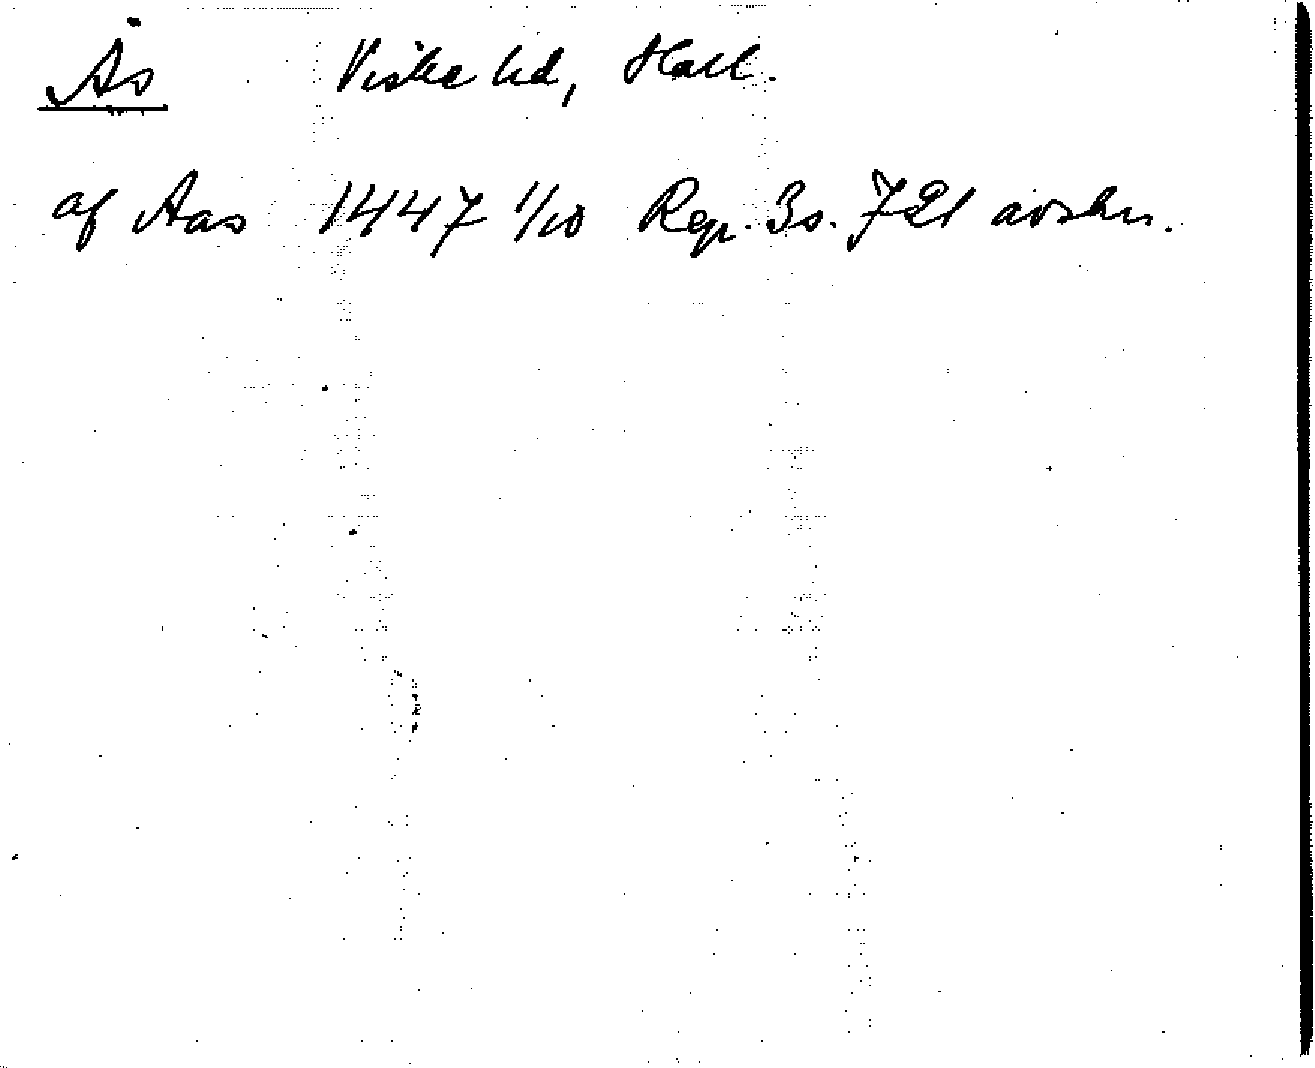 Ås Viske hd, Hall.
af Aas 1447 1/10 Rep. 3 s. 721 avskr.